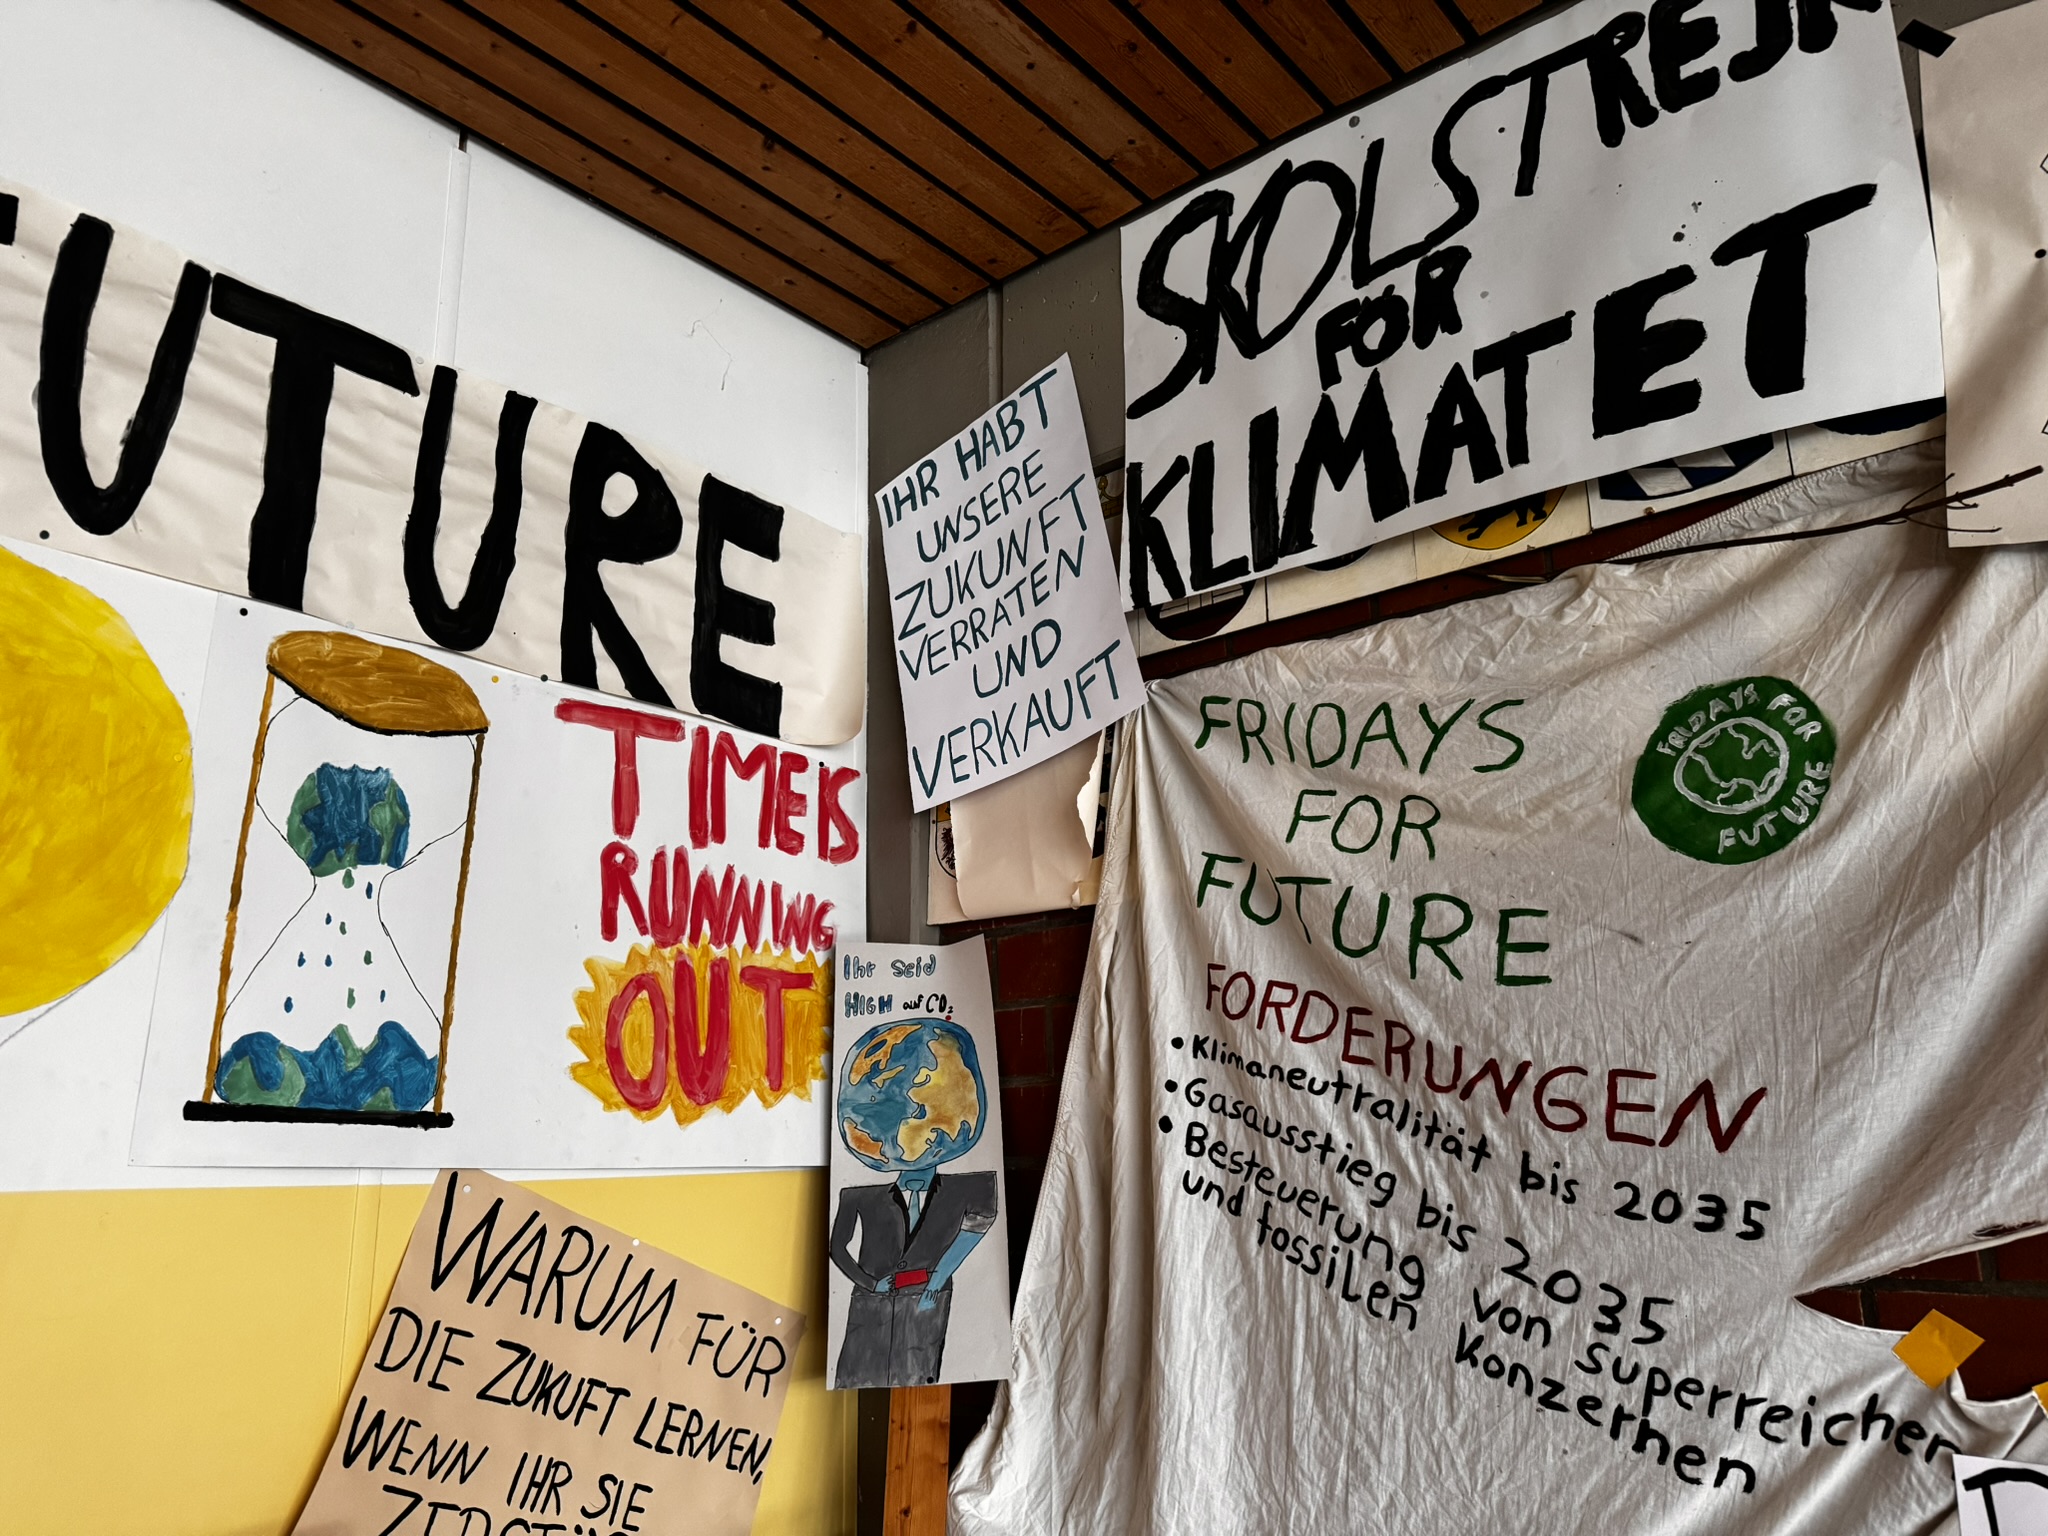 FUTURE
TIME IS
RUNNING
OUT
WARUM FÜR
DIE ZUKUFT LERNEN,
WENN IHR SIE
IHR HABT
UNSERE
ZUKUNFT
VERRATEN
UND
VERKAUFT
Ihr seid
HIGH auf CO₂
SKOLSTREJK
FÖR
KLIMATET
FRIDAYS
FOR
FUTURE
FRIDAYS FOR
FUTURE
FORDERUNGEN
• Klimaneutralität bis 2035
• Gasausstieg bis 2035
• Besteuerung von superreichen
und fossilen Konzernen